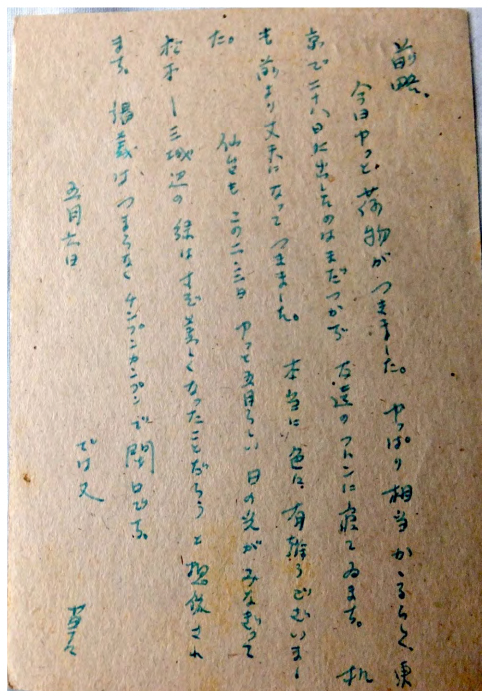 前略、
今日やっと荷物がつきました。やっぱり相当かゝるらしく、東
京で二十八日に出したのはまだつかず 友達のフトンに寝てゐます。机
も前より丈夫になってつきました。 本当に色々 有難うございまし
た。
仙台も この二・三日 やっと五月らしい 日の光がみなぎって
松本ー三城辺の 緑はすぐ 濃くなったことだらう と 想像され
ます。講義は、つまらなく チンプンカンプンで 閉口です。
五月六日
では又